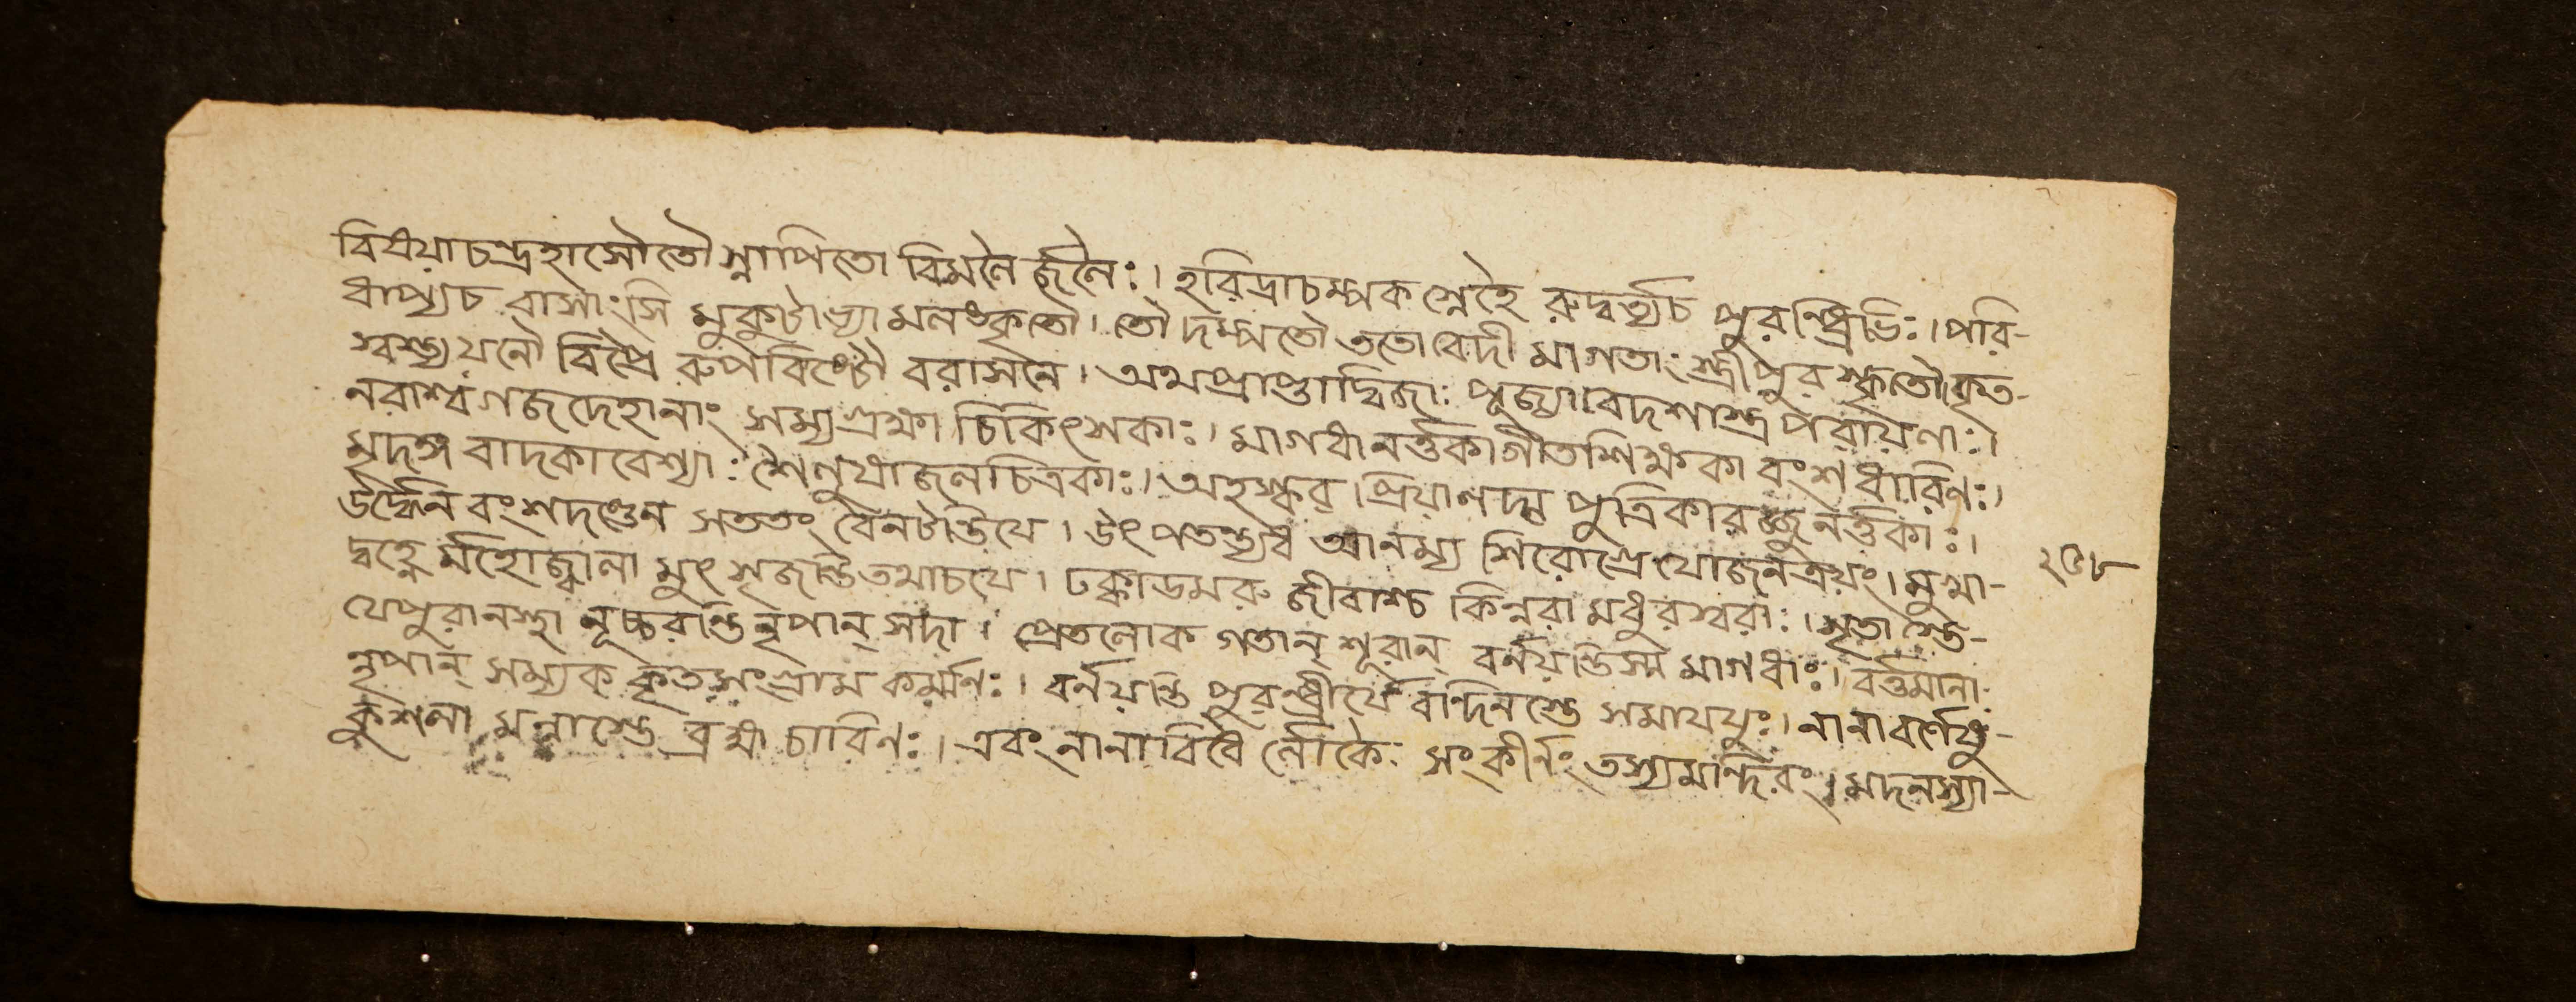 বিষয়াচন্দ্রহাসৌতৌ স্নাপিতো বিমলৈ র্জলৈঃ। হরিদ্রাচম্পক স্নেহৈ রুদ্বর্ত্ত্যচ পুরন্ধ্রিভিঃ। পরি-
ধাপ্যচ বাসাংসি মুকুটাভ্যা মলঙ্কৃতৌ। তৌ দম্পতৌ ততোবেদী মাগতাং স্ত্রীপুরস্কৃতৌ। কৃত-
স্বস্ত্যয়নৌ বিপ্রৈ রুপবিষ্টৌ বরাসনে। অথপ্রাপ্তাদ্বিজাঃ পূজ্যা বেদশাস্ত্র পরায়ণাঃ।
নরাশ্ব গজদেহানাং সম্যগ্রক্ষা চিকিৎসকাঃ। মাগধানর্ত্তকা গীতশিক্ষকা বংশধারিণঃ।
মৃদঙ্গ বাদকাবেশ্যাঃ শৈলুষাজলচিত্রকাঃ। অহস্কর। প্রিয়ালপদ্ম পুত্রিকারজ্জুনর্ত্তকাঃ।
উর্দ্ধেন বংশদণ্ডেন সততং বৈনটান্তিযে। উৎপতন্ত্যধ আনম্য শিরোগ্রে যোজনত্রয়ং। মুখা-
দ্বহ্নে র্মহোজ্বালা মুৎসৃজন্তিতথাচযে। ঢক্কাডমরু জীবাশ্চ কিন্নরা মধুরস্বরাঃ। সূতাস্তে-
যেপুরানস্থা নূচ্চরন্তিনৃপান্ সদা। প্রেতলোক গতান্ শূরান্ বর্নয়ন্তিস্ম মাগধাঃ। বর্ত্তমানা
ন্নৃপান্ সম্যক্ কৃতসংগ্রাম কর্ম্মণিঃ। বর্নয়ন্তি পুরন্ধ্রীর্যে বন্দিনস্তে সমাযযুঃ। নানাবর্ণেষু-
কুশলা মল্লাস্তে ব্রহ্মচারিণঃ। এবং নানাবিধৈ র্লোকৈঃ সংকীর্নং তস্যমন্দিরং। মদনস্যা-
২৩৮